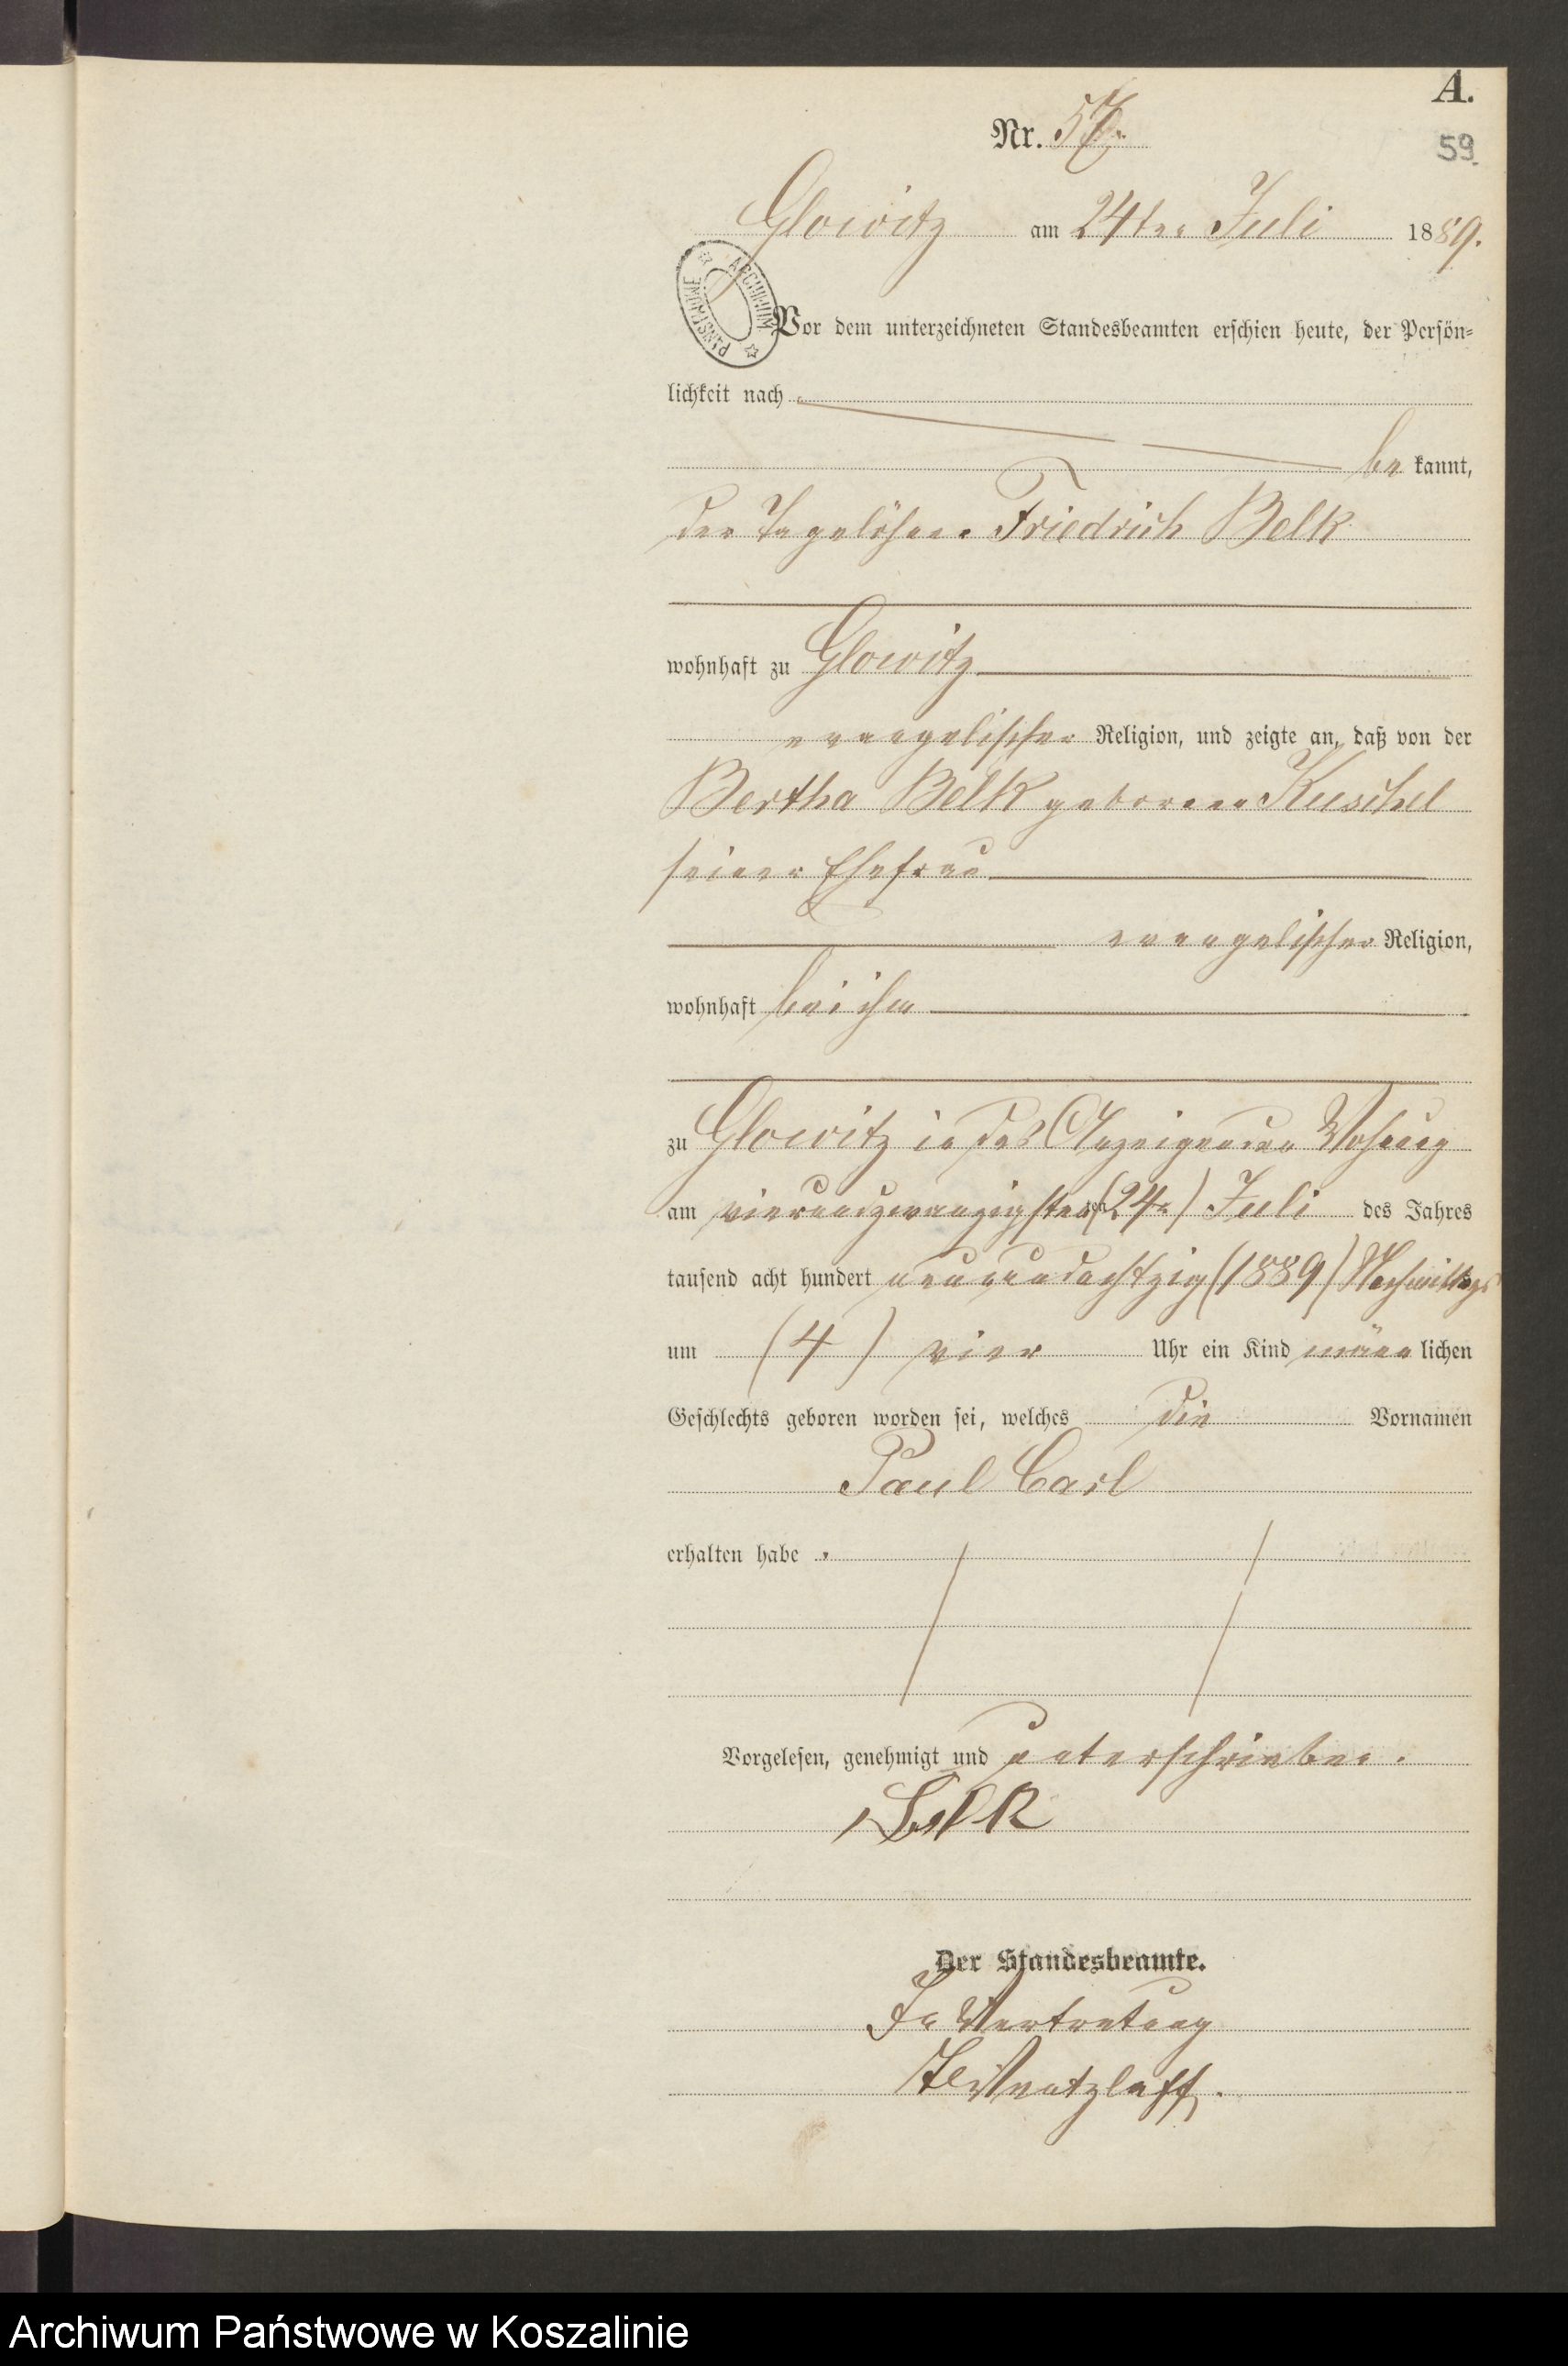 A.
Nr. 57.
59
Glowitz am 24ten Juli 1889.
ARCHIWUM PAŃSTWOWE
Vor dem unterzeichneten Standesbeamten erschien heute, der Persön=
lichkeit nach
be kannt,
der Tagelöhner Friedrich Belk
wohnhaft zu Glowitz
evangelischer Religion, und zeigte an, daß von der
Bertha Belk geborenen Kuschel
seiner Ehefrau
evangelischer Religion,
wohnhaft bei ihm
zu Glowitz in des Anzeigenden Wohnung
am vierundzwanzigsten (24ten) Juli des Jahres
tausend acht hundert neunundachtzig (1889) Nachmittags
um (4) vier Uhr ein Kind männ lichen
Geschlechts geboren worden sei, welches die Vornamen
Paul Carl
erhalten habe.
Vorgelesen, genehmigt und unterschrieben.
Belk
Der Standesbeamte.
In Vertretung
Wentzlaff.
Archiwum Państwowe w Koszalinie